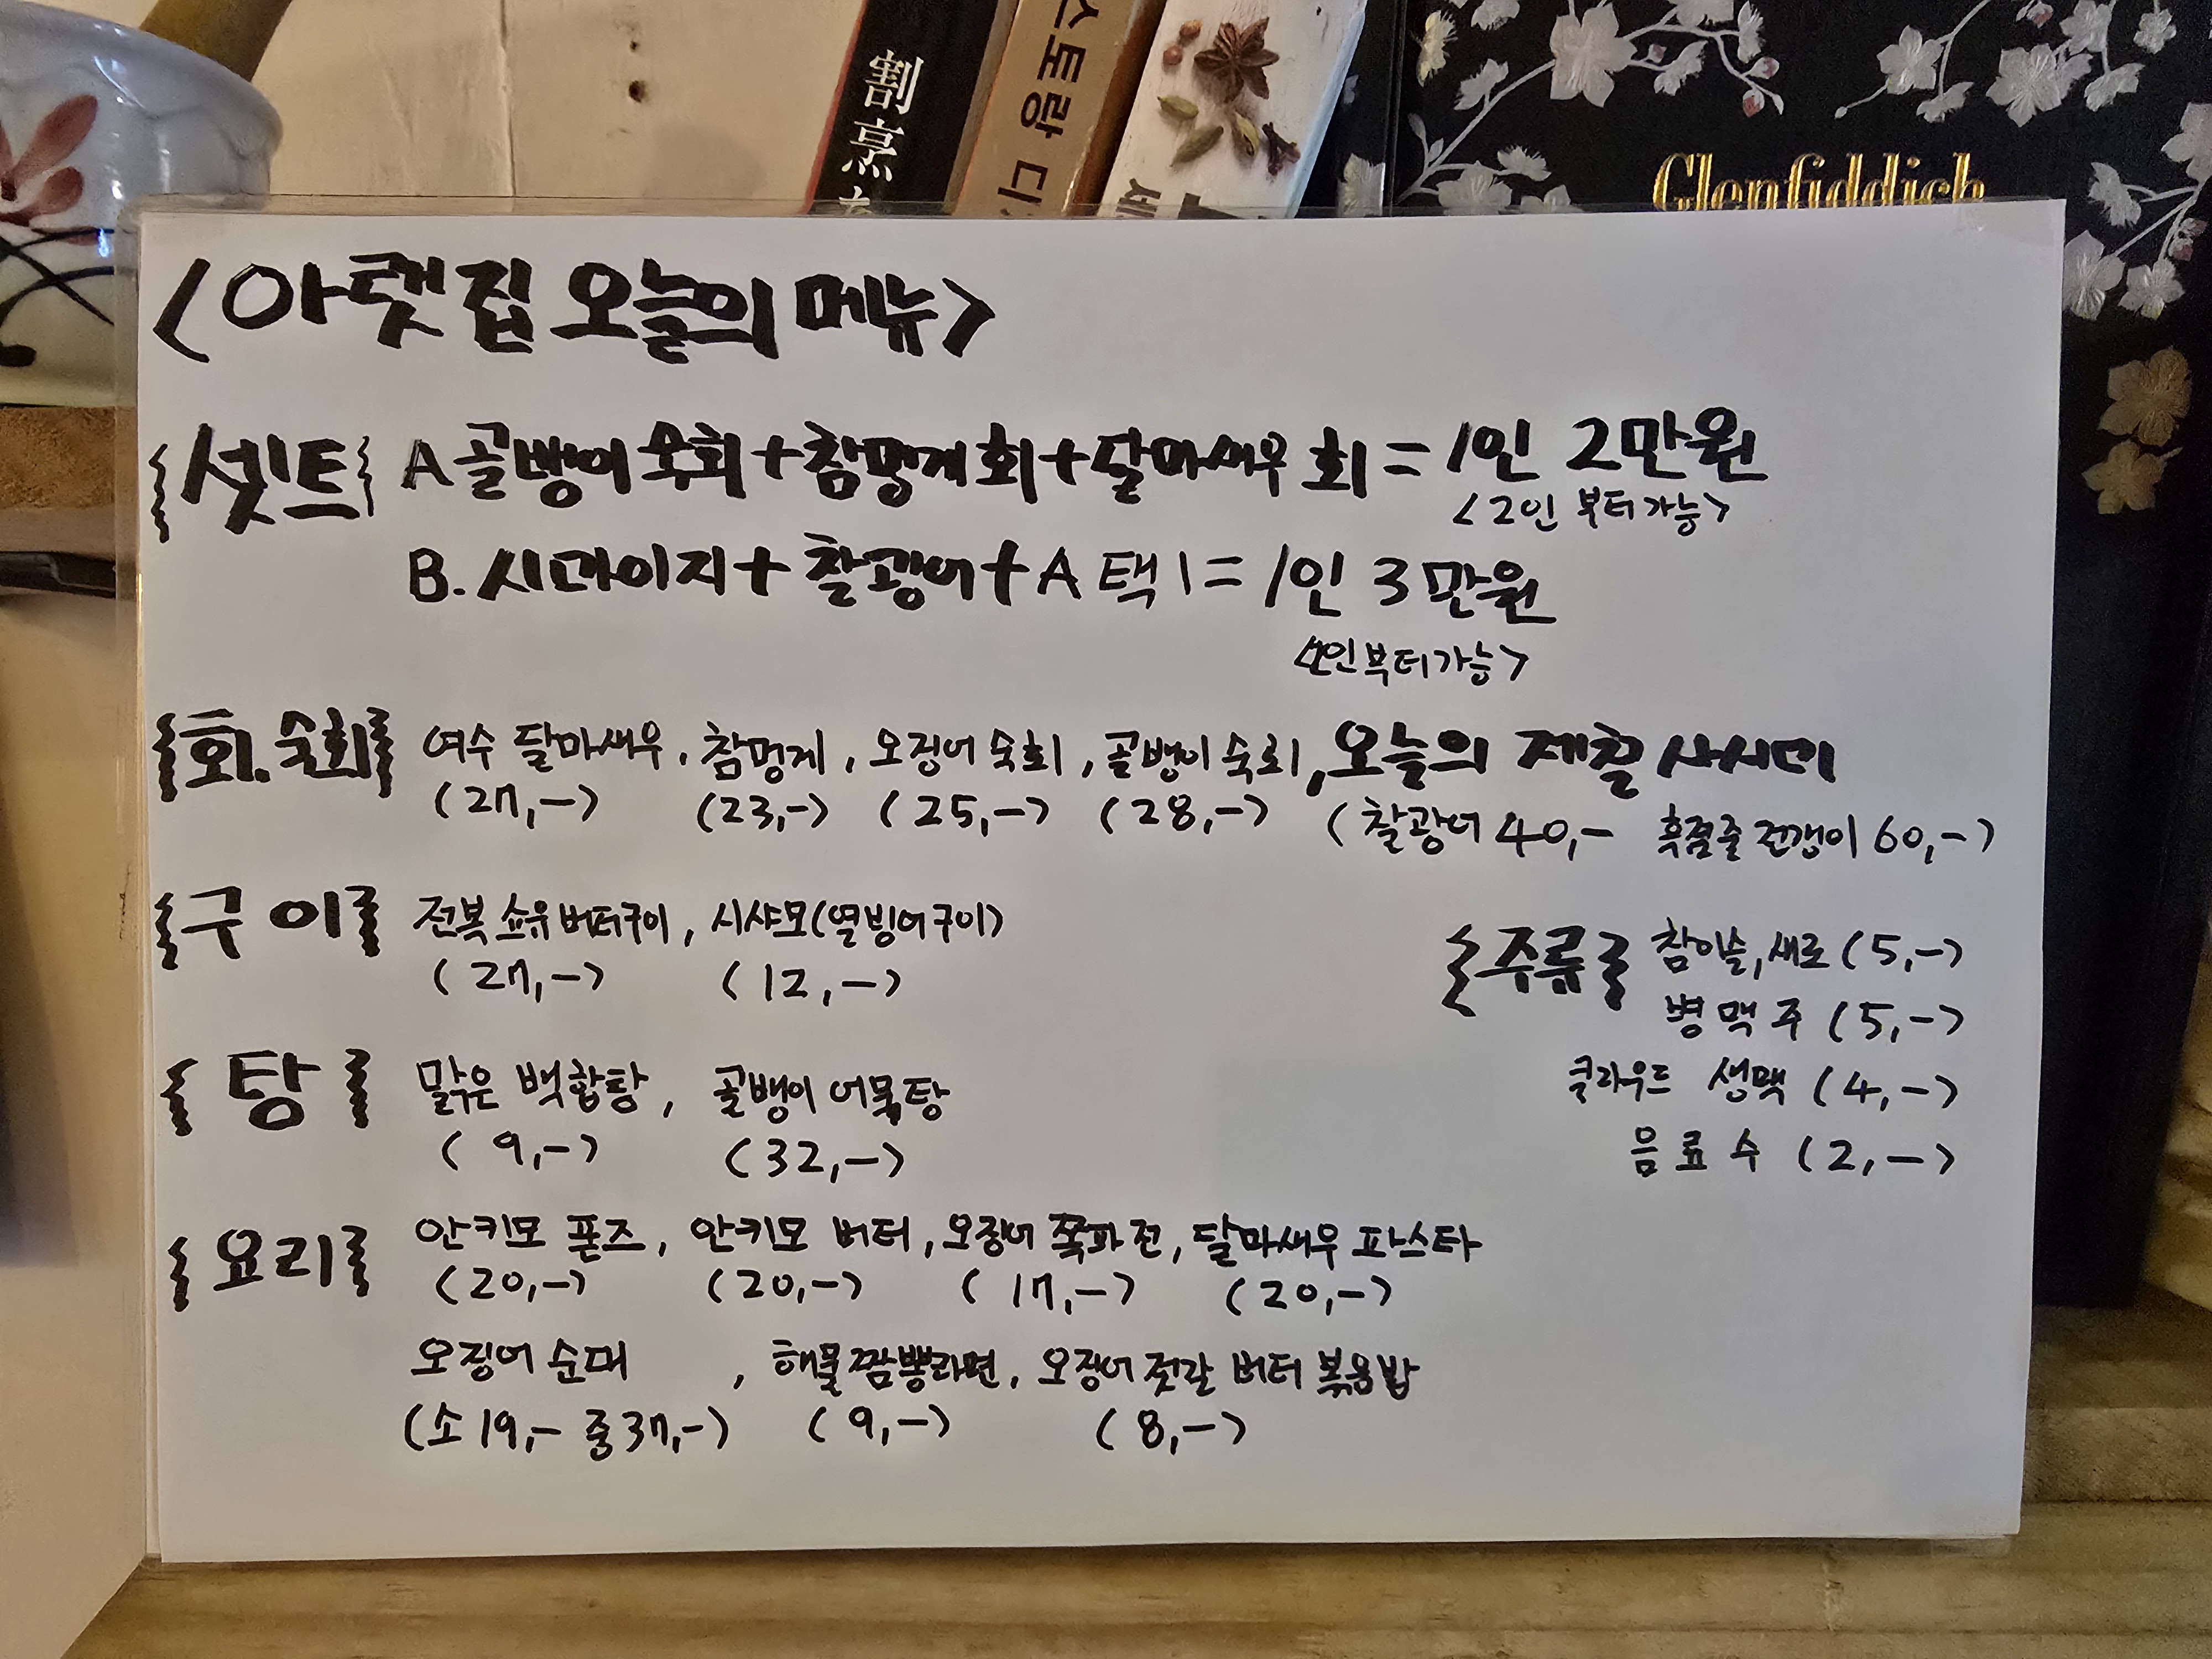 割烹
스토랑 디
세
Glenfiddich
<아랫집 오늘의 메뉴>
{셋트} A 골뱅이 숙회+참멍게회+달마새우 회=1인 2만원
<2인 부터가능>
B. 시마아지+찰광어+A 택1=1인 3만원
<2인부터가능>
{회.숙회} 여수 달마새우, 참멍게, 오징어 숙회, 골뱅이 숙회, 오늘의 제철 사시미
(27,-) (23,-) (25,-) (28,-) (찰광어 40,- 흑점줄전갱이 60,-)
{구이} 전복 쇼유버터구이, 시샤모(열빙어구이)
(27,-) (12,-)
{주류} 참이슬,새로 (5,-)
병맥주 (5,-)
클라우드 생맥 (4,-)
음료수 (2,-)
{탕} 맑은 백합탕, 골뱅이 어묵탕
(9,-) (32,-)
{요리} 안키모 폰즈, 안키모 버터, 오징어 쪽파전, 달마새우 파스타
(20,-) (20,-) (17,-) (20,-)
오징어 순대, 해물짬뽕라면, 오징어 젓갈 버터 볶음밥
(소 19,- 중 37,-) (9,-) (8,-)